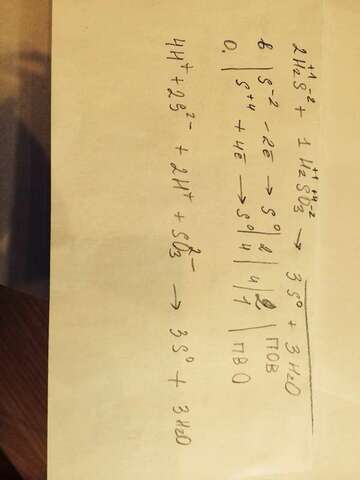 +1 -2 +1 +4 -2
2H₂S + 1H₂SO₃ → 3S⁰ + 3H₂O
в | S⁻² - 2ē → S⁰ | 2 | 4 | 2 | ПОВ
о. | S⁺⁴ + 4ē → S⁰ | 4 | 1 | ПВО
4H⁺ + 2S²⁻ + 2H⁺ + SO₃²⁻ → 3S⁰ + 3H₂O